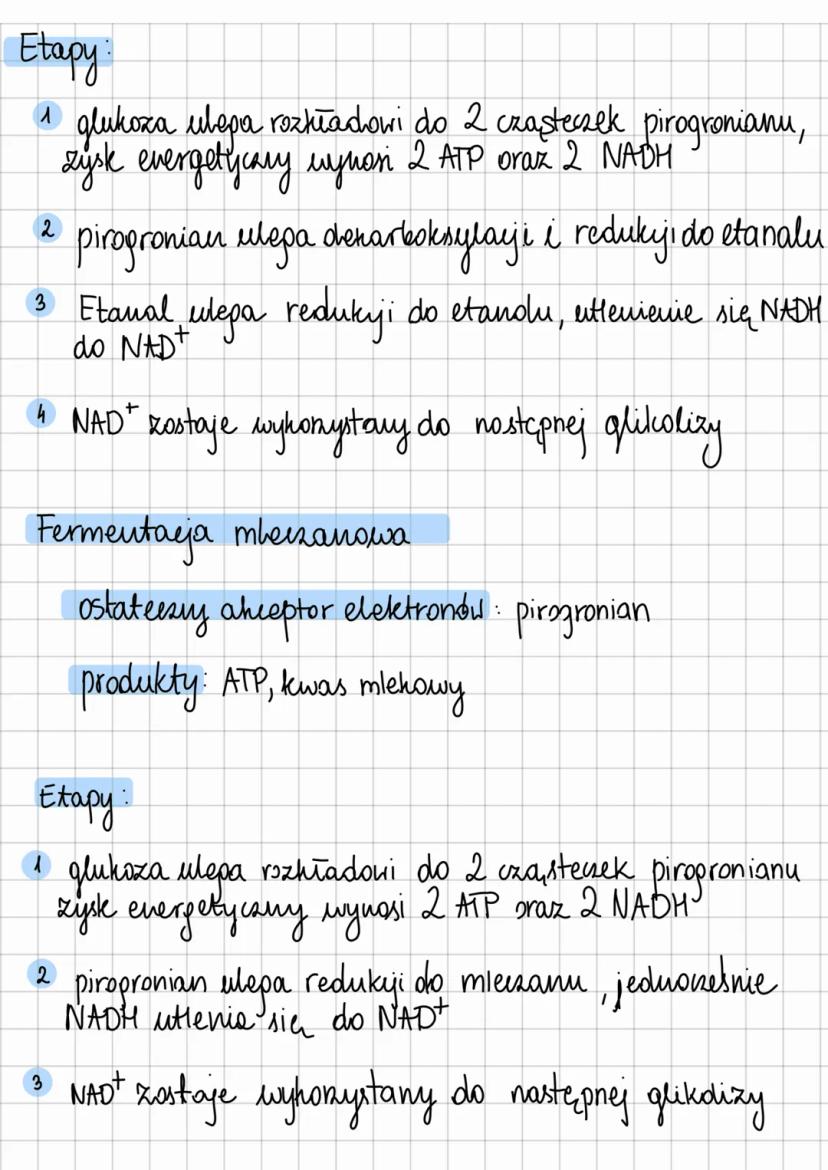 Etapy:
1 glukoza ulega rozkładowi do 2 cząsteczek pirogronianu,
zysk energetyczny wynosi 2 ATP oraz 2 NADH
2 pirogronian ulega dekarboksylacji i redukcji do etanalu
3 Etanal ulega redukcji do etanolu, utlenienie się NADH
do NAD⁺
4 NAD⁺ zostaje wykorzystany do następnej glikolizy
Fermentacja mleczanowa
ostateczny akceptor elektronów: pirogronian
produkty: ATP, kwas mlekowy
Etapy:
1 glukoza ulega rozkładowi do 2 cząsteczek pirogronianu
zysk energetyczny wynosi 2 ATP oraz 2 NADH
2 pirogronian ulega redukcji do mleczanu, jednocześnie
NADH utlenia się do NAD⁺
3 NAD⁺ zostaje wykorzystany do następnej glikolizy